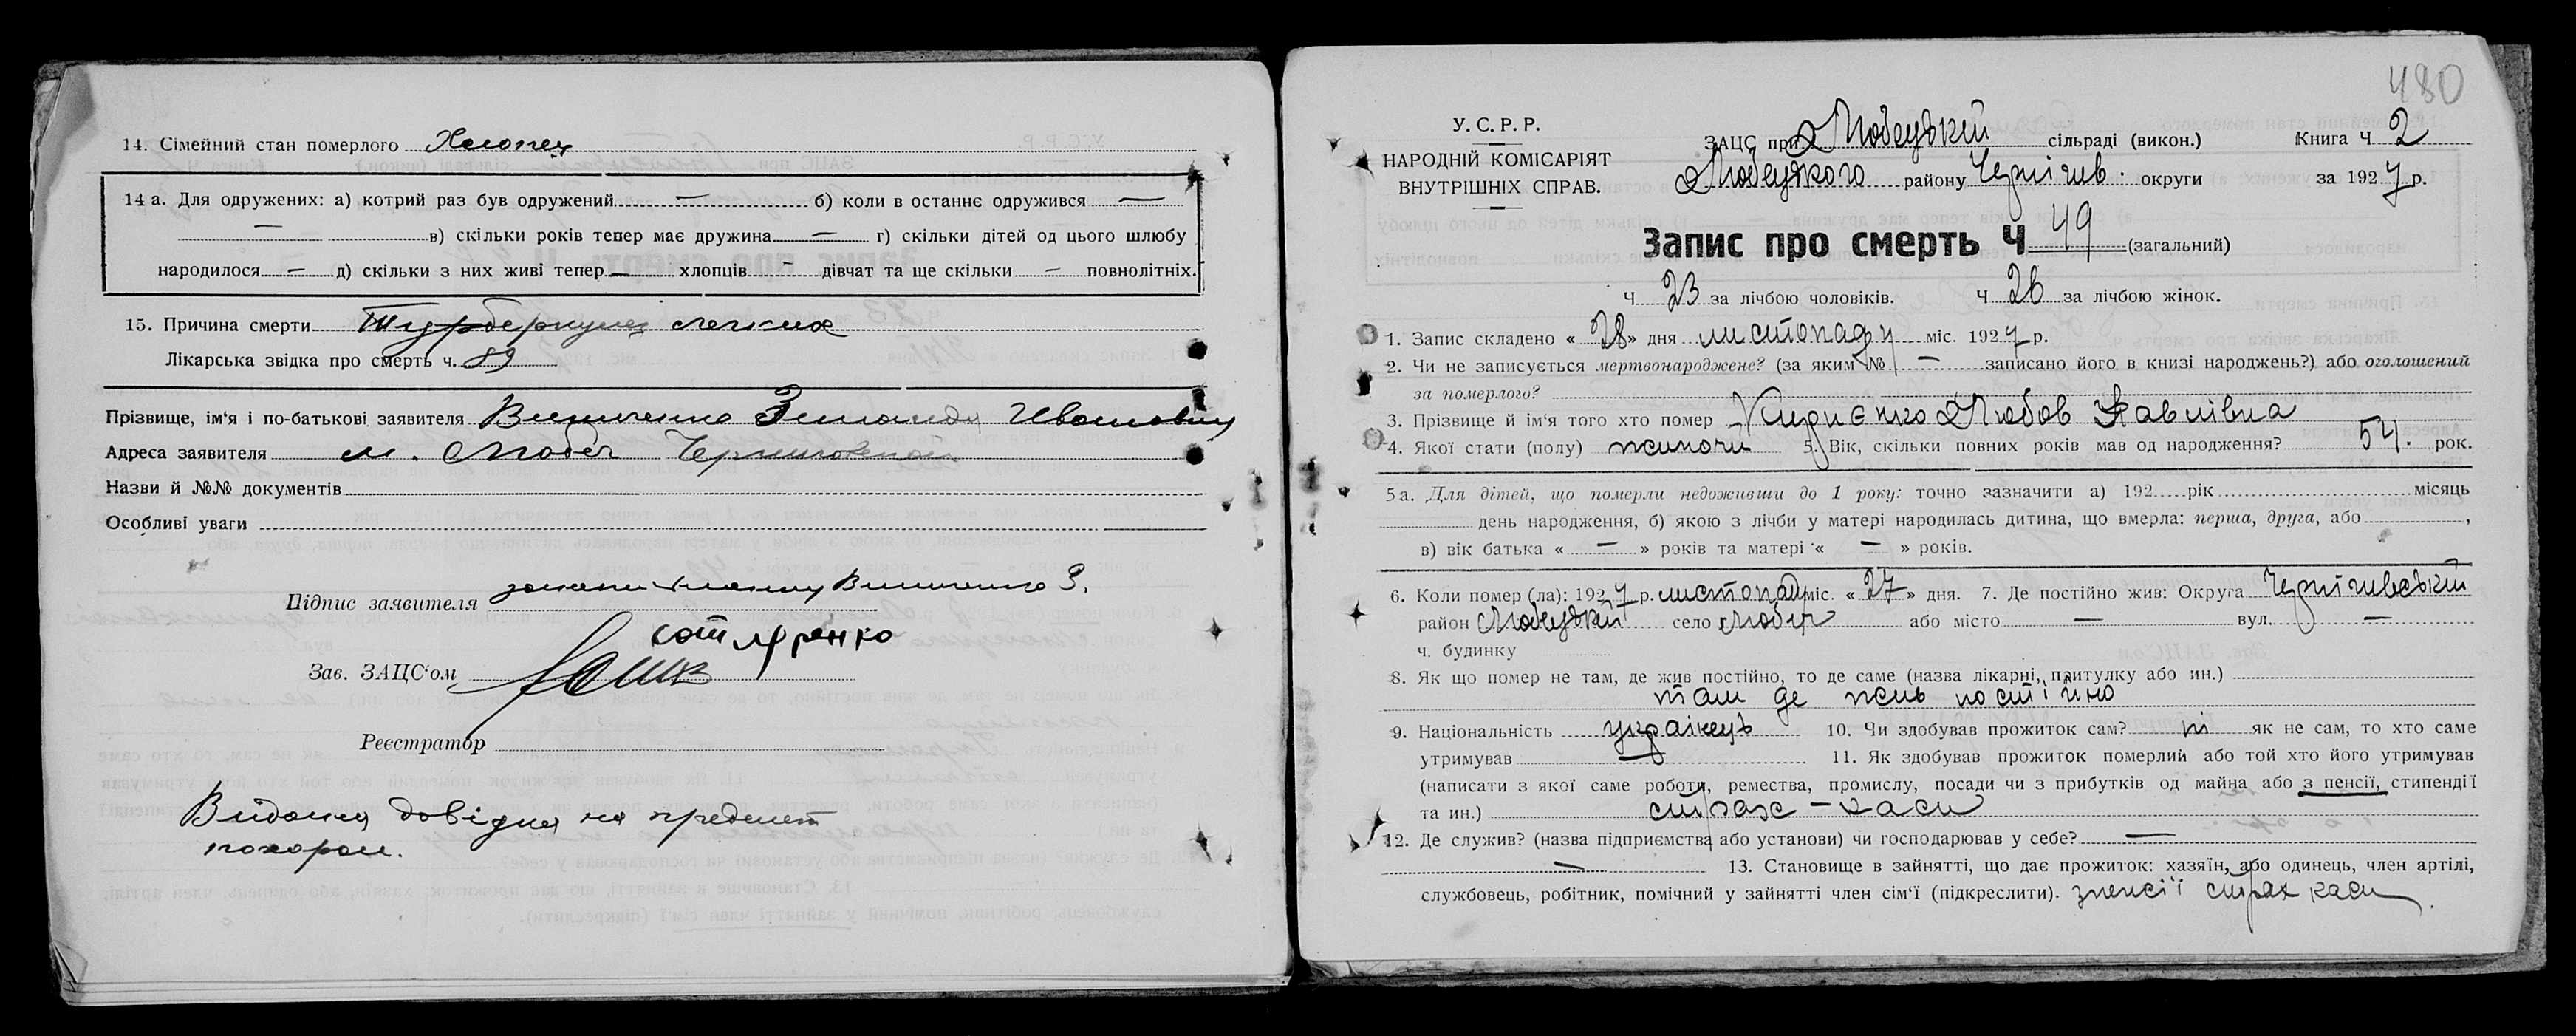 14. Сімейний стан померлого Хлопец
14 а. Для одружених: а) котрий раз був одружений — б) коли в останнє одружився —
— в) скільки років тепер має дружина — г) скільки дітей од цього шлюбу
народилося — д) скільки з них живі тепер — хлопців - дівчат та ще скільки — повнолітніх.
15. Причина смерти легких
Лікарська звідка про смерть ч. 89
Прізвище, ім'я і по-батькові заявителя
Адреса заявителя м. Любеч
Назви й №№ документів
Особливі уваги
Підпис заявителя
Зав. ЗАЦС'ом
Реєстратор
Видана довідка на предмет
похорон.
480
У. С. Р. Р.
НАРОДНІЙ КОМІСАРІЯТ
ВНУТРІШНІХ СПРАВ.
ЗАЦС при Любецькій сільраді (викон.) Книга Ч 2
Любецкого району Чернігив. округи за 1927 р.
Запис про смерть Ч 49 (загальний)
Ч 23 за лічбою чоловіків. Ч 26 за лічбою жінок.
1. Запис складено « 28 » дня листопаду міс. 1927 р.
2. Чи не записується мертвонароджене? (за яким № — записано його в книзі народжень?) або оголошений
за померлого?
3. Прізвище й ім'я того хто помер Кириєнко Любов Павлівна
4. Якої стати (полу) жиночи 5. Вік, скільки повних років мав од народження? 54. рок.
5 а. Для дітей, що померли недоживши до 1 року: точно зазначити а) 192 рік місяць
день народження, б) якою з лічби у матері народилась дитина, що вмерла: перша, друга, або ,
в) вік батька « — » років та матері « — » років.
6. Коли помер (ла): 1927 р. листопад міс. « 27 » дня. 7. Де постійно жив: Округа Чернігивській
район Любецькій село Любеч або місто — вул. —
ч. будинку
8. Як що помер не там, де жив постійно, то де саме (назва лікарні, притулку або ин.)
там де жив постійно
9. Національність украінець 10. Чи здобував прожиток сам? ні як не сам, то хто саме
утримував — 11. Як здобував прожиток померлий або той хто його утримував
(написати з якої саме роботи, ремества, промислу, посади чи з прибутків од майна або з пенсії, стипендії
та ин.) страх - каси
12. Де служив? (назва підприємства або установи) чи господарював у себе? —
— 13. Становище в зайнятті, що дає прожиток: хазяїн, або одинець, член артілі,
службовець, робітник, помічний у зайнятті член сім'ї (підкреслити). зпенсії страх каси